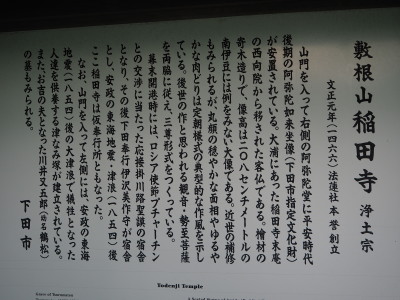 敷根山 稲田寺 浄土宗
文正元年(一四六六)法蓮社 本誉 創立
山門を入って右側の阿弥陀堂に平安時代
後期の阿弥陀如来坐像(下田市指定文化財)
が安置されている。大浦にあった稲田寺末庵
の西向院から移された客仏である。檜材の
寄木造りで、像高は二〇八センチメートルの
南伊豆には例をみない大像である。近世の補修
もみられるが、丸顔の穏やかな面相やゆるや
かな肉どりは定朝様式の典型的な作風を示し
ている。後世の作と思われる観音・勢至菩薩
を両脇に従え、三尊形式をつくっている。
幕末開港時には、ロシア使節プチャーチン
との交渉に当たった応接掛川路聖謨の宿舎
となり、その後下田奉行伊沢美作守が宿舎
とし、安政の東海地震・津波(一八五四)後
ここ稲田寺は仮奉行所ともなった。
なお、山門を入って左側には、安政の東海
地震(一八五四)後の大津波で犠牲となった
人達を供養する津なみ塚が建立されている。
また、お吉の夫となった川井又五郎(幼名鶴松)
の墓もみられる。
下田市
Todenji Temple